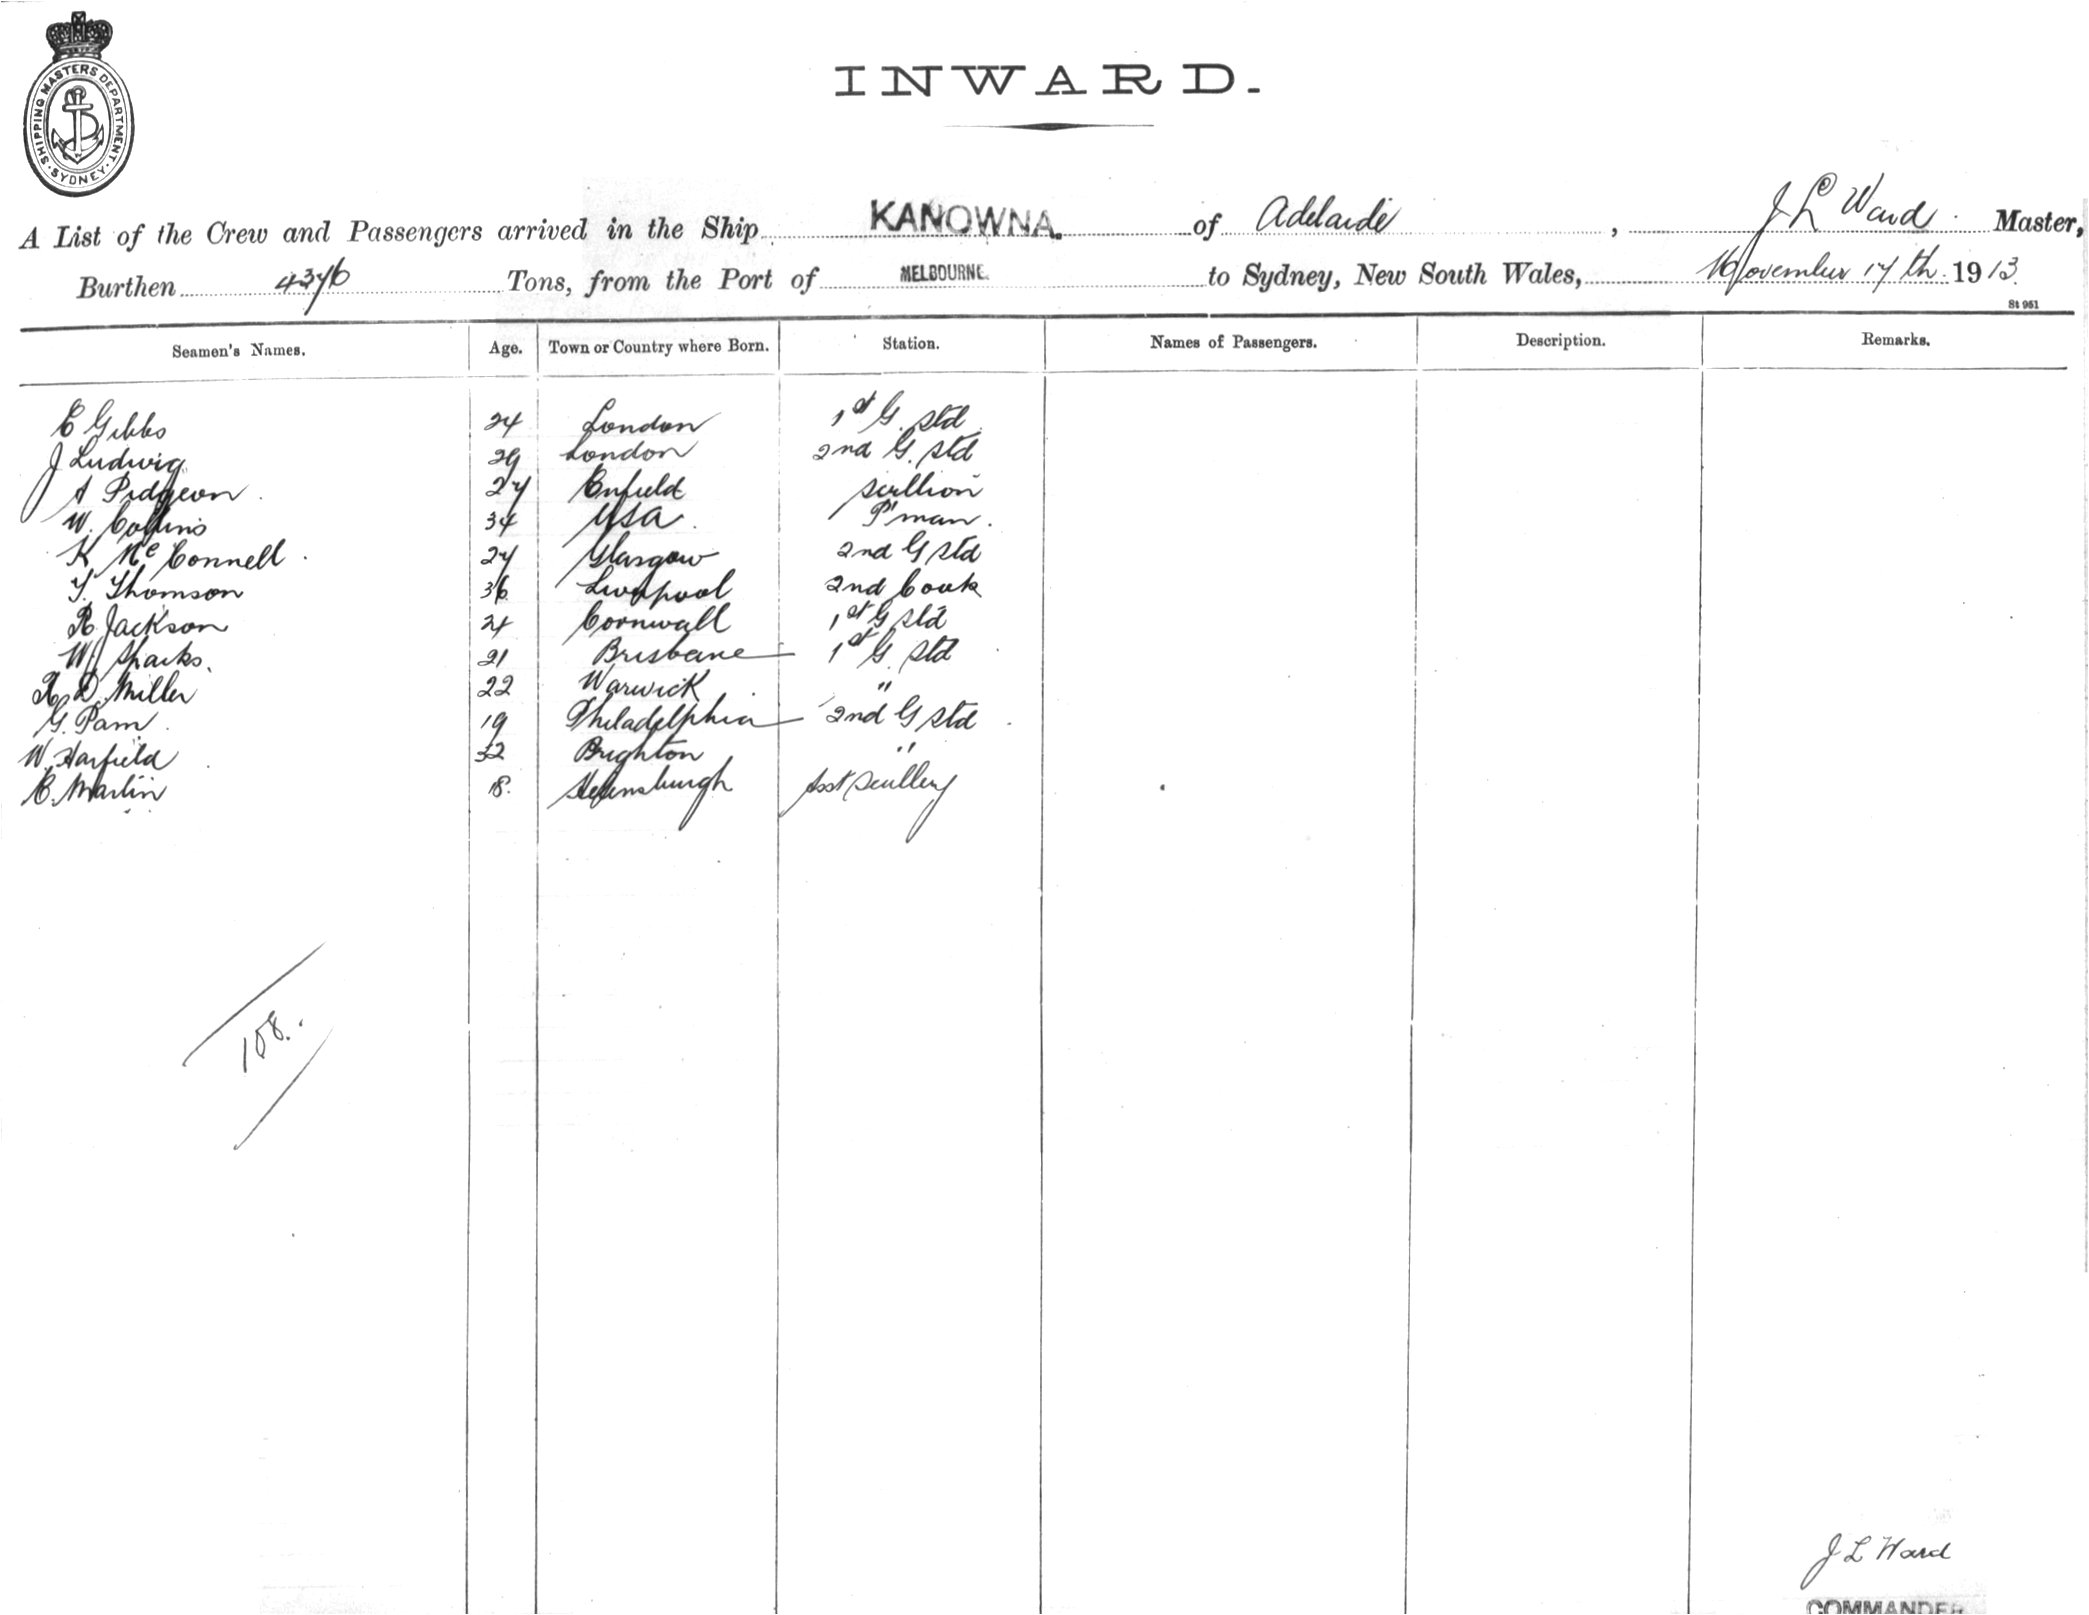 SHIPPING MASTERS DEPARTMENT · SYDNEY ·
INWARD.
A List of the Crew and Passengers arrived in the Ship KANOWNA. of Adelaide, J L Ward. Master,
Burthen 4376 Tons, from the Port of MELBOURNE. to Sydney, New South Wales, November 17th 1913
St 951
Seamen's Names. Age. Town or Country where Born. Station. Names of Passengers. Description. Remarks.
C Gibbs 24 London 1st G. Std
J Ludwig 29 London 2nd G. Std
A Pidgeon 27 Enfield Scullion
W. Collins 34 USA P'man.
K McConnell 27 Glasgow 2nd G Std
T. Thomson 36 Liverpool 2nd Cook
R Jackson 24 Cornwall 1st G Std
W J Sparks. 21 Brisbane 1st G. Std
R D Miller 22 Warwick "
G. Pam 19 Philadelphia 2nd G Std
W. Harfield 32 Brighton "
C. Martin 18. Helensburgh Asst Scullery
108.
J L Ward
COMMANDER